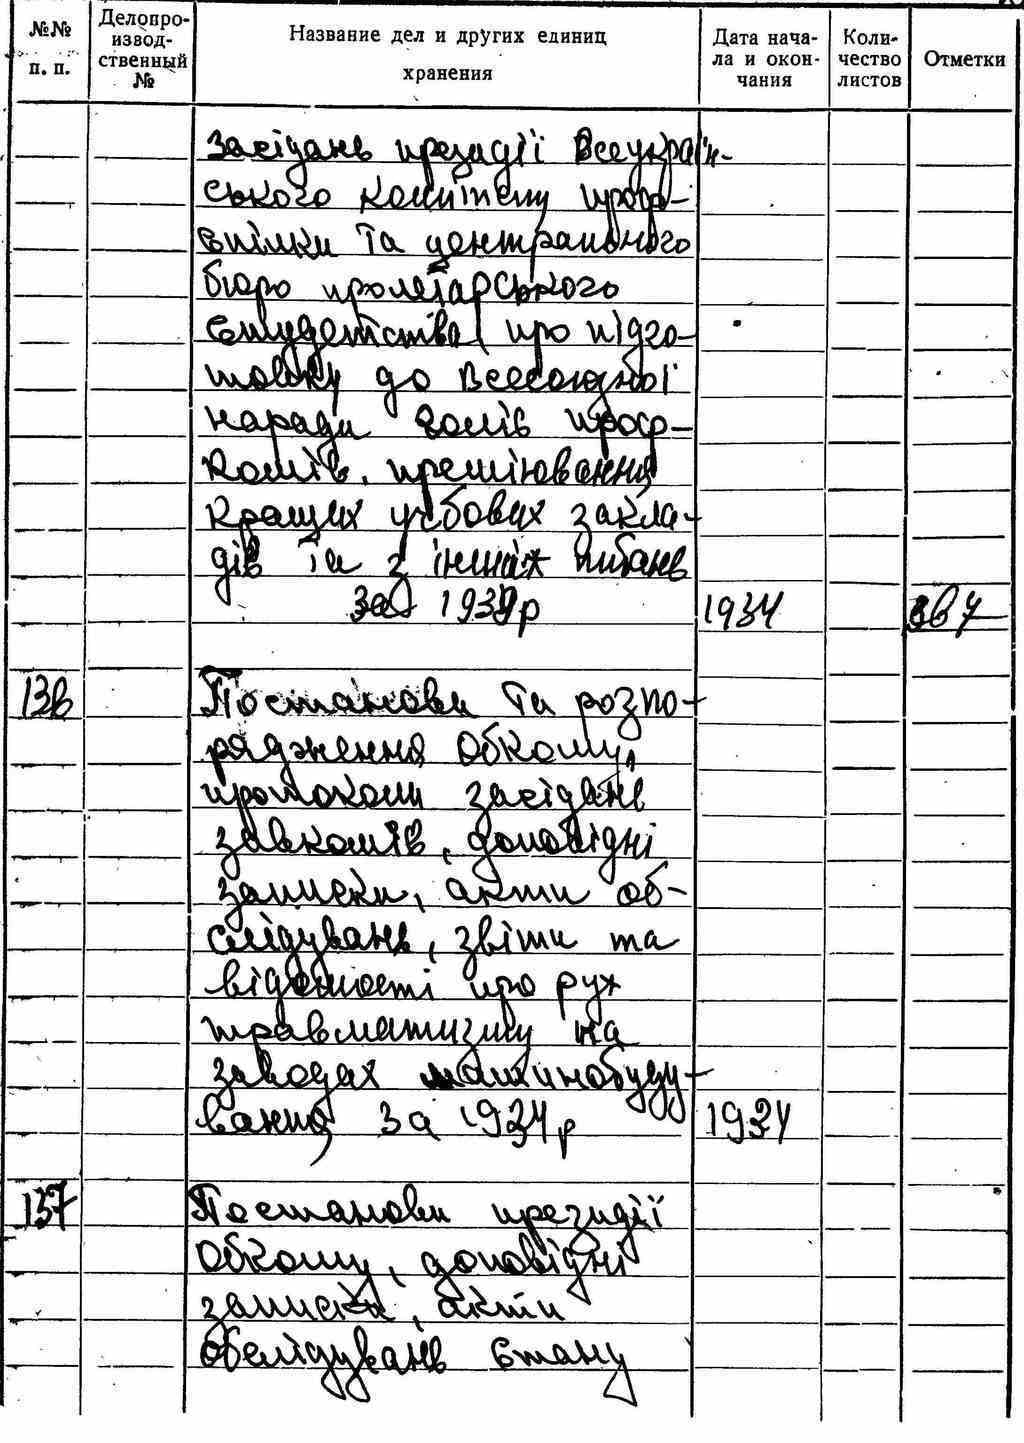 №№ п. п.
Делопро-
извод-
ственный
№
Название дел и других единиц
хранения
Дата нача-
ла и окон-
чания
Коли-
чество
листов
Отметки
Засідань президії Всеукраїн-
ського комітету проф-
спілки та центрального
бюро пролетарського
студентства про підго-
товку до Всесоюзної
наради голів проф-
комів, преміювання
кращих учбових закла-
дів та з інших питань
за 1934 р 1934
136 Постанови та розпо-
рядження обкому,
протоколи засідань
завкомів, доповідні
записки, акти об-
слідувань, звіти та
відомості про рух
травматизму на
заводах машинобуду-
вання за 1934 р 1934
137 Постанови президії
обкому, доповідні
записки, акти
обслідувань стану